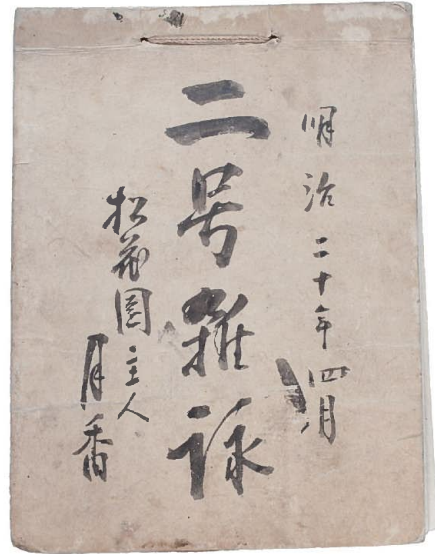 明治二十年四月
二号雑詠
松花園主人
月香